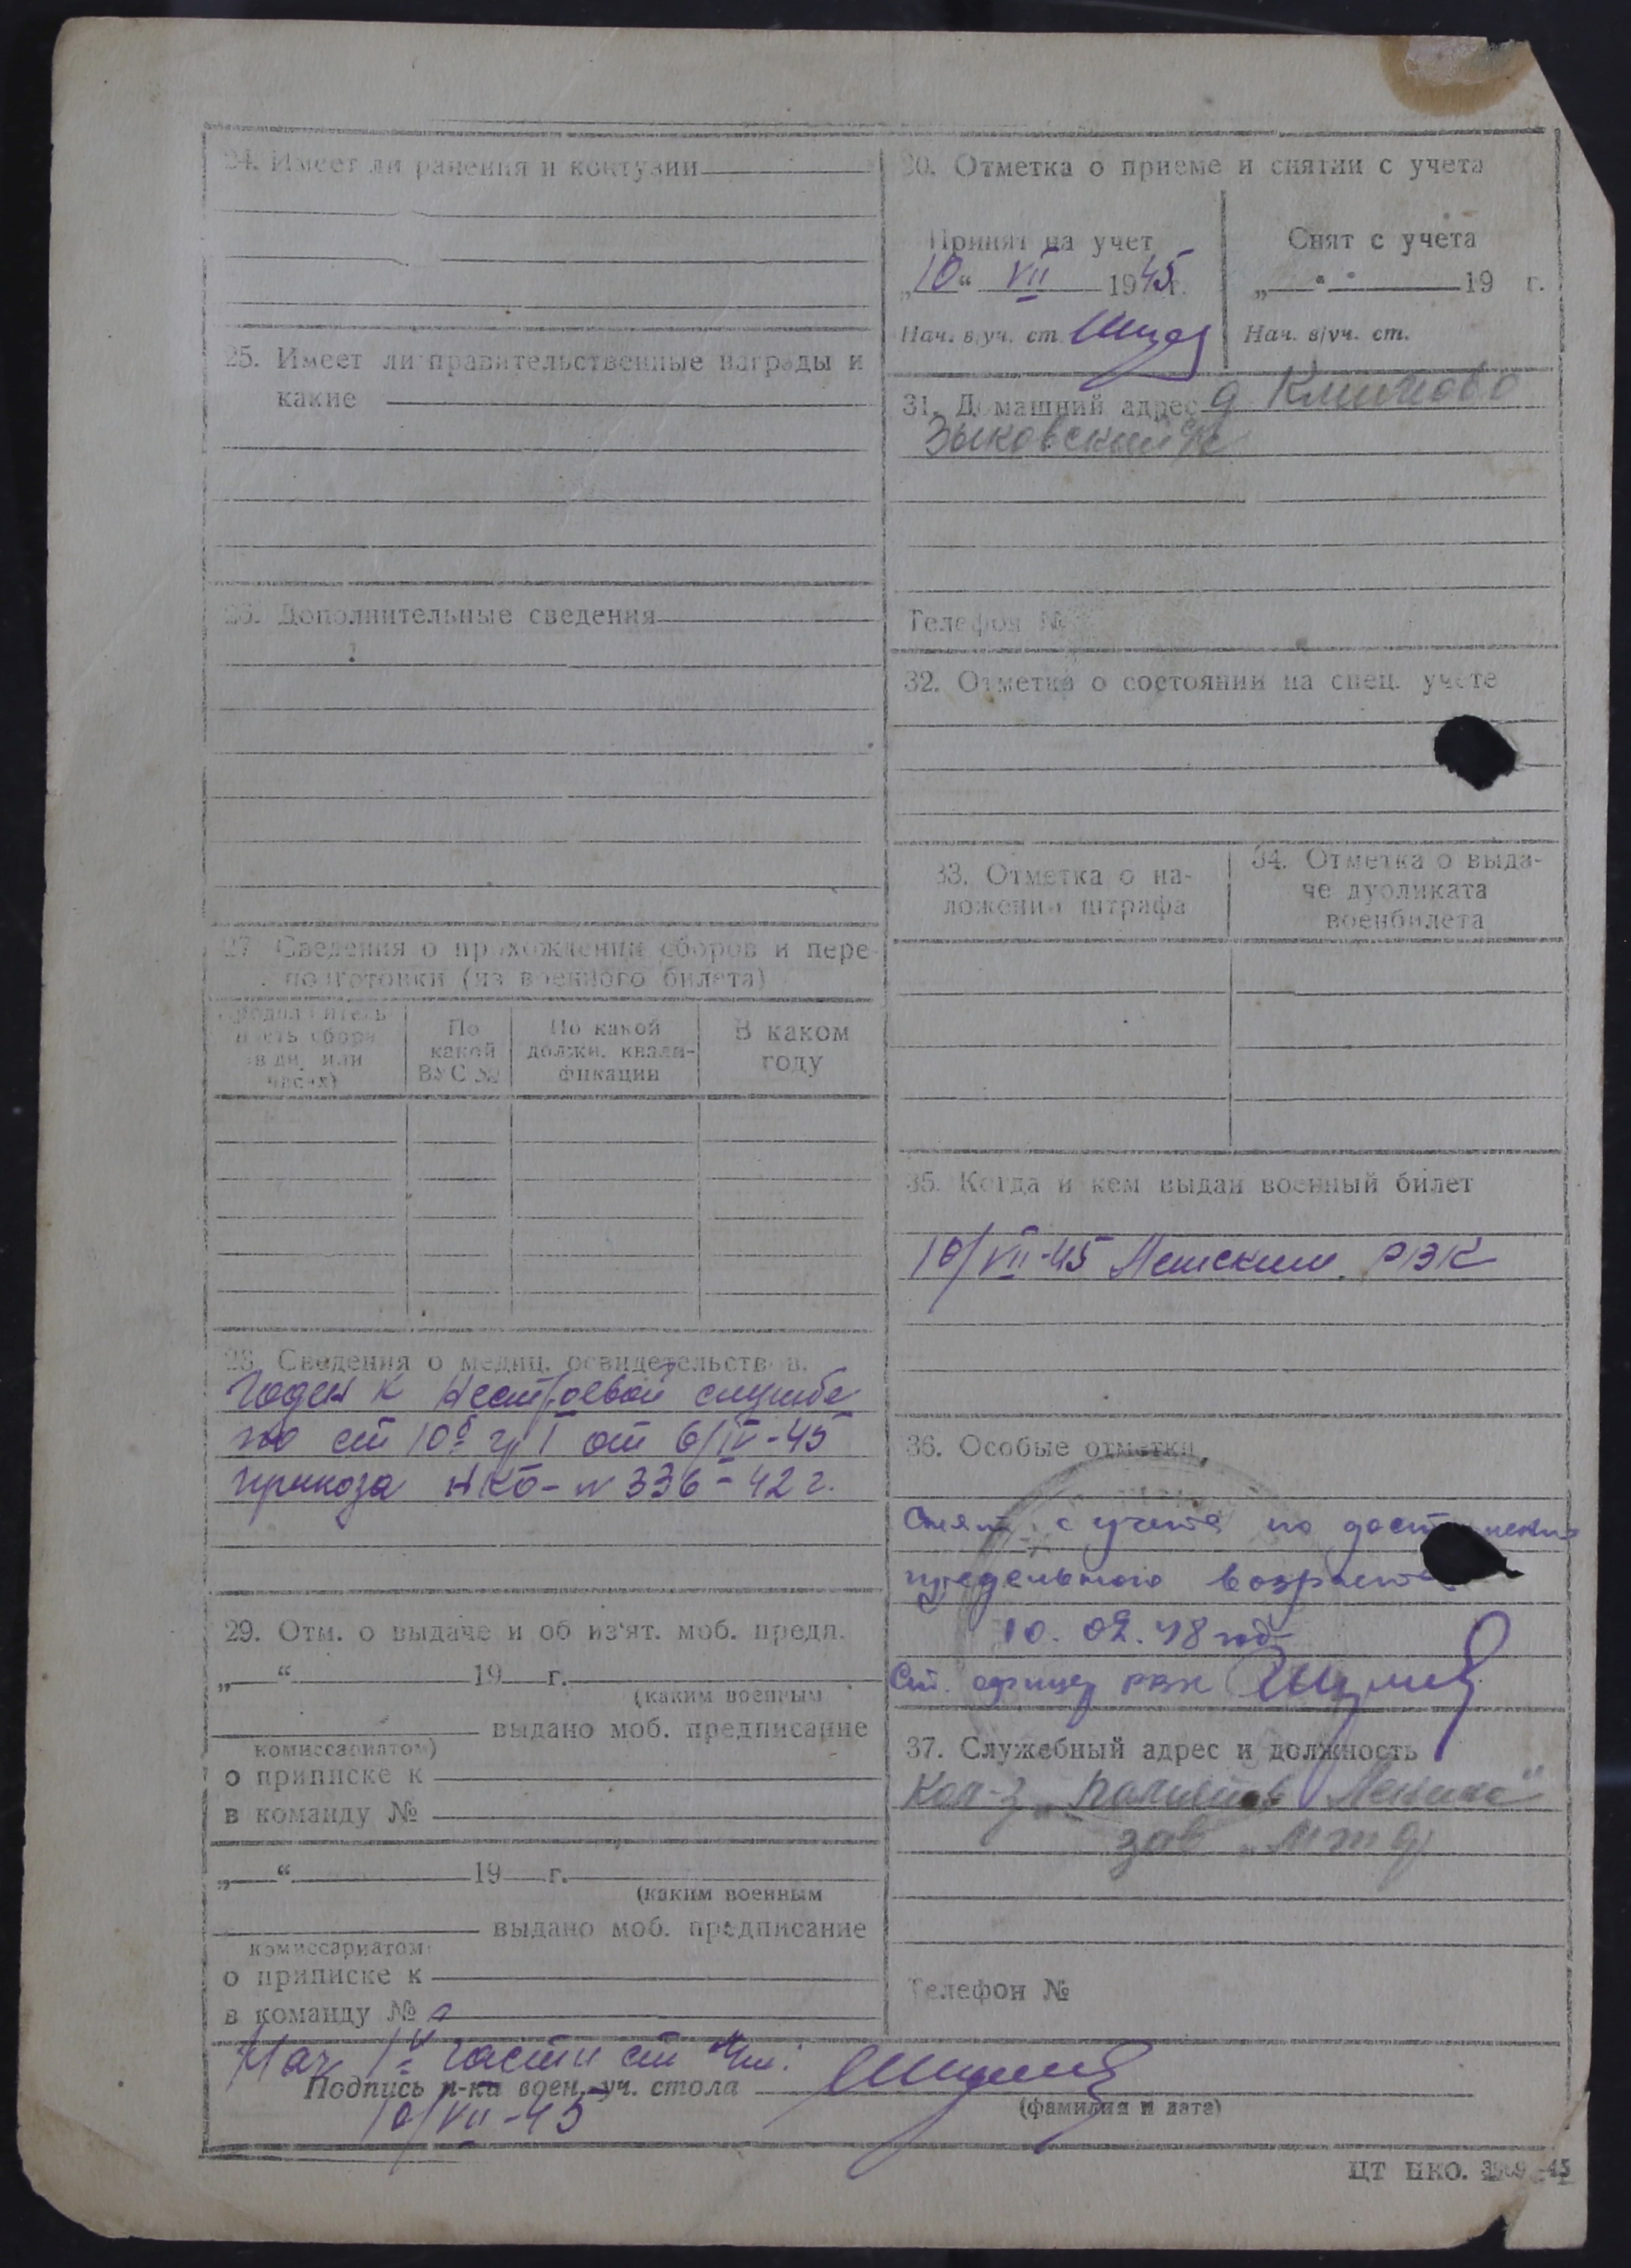 24. Имеет ли ранения и контузии
25. Имеет ли правительственные награды и
какие
26. Дополнительные сведения
27. Сведения о прохождении сборов и пере-
подготовки (из военного билета)
Продолжитель-
ность сбора
(в дн. или
часах)
По
какой
ВУС №
По какой
должн. квали-
фикации
В каком
году
28. Сведения о медиц. освидетельствов.
Годен к нестроевой службе
по ст 10б гр I от 6/IV-45
приказа НКО - N 336 - 42 г.
29. Отм. о выдаче и об из'ят. моб. предп.
„ “ 19 г.
(каким военным
выдано моб. предписание
комиссариатом)
о приписке к
в команду №
„ “ 19 г.
(каким военным
выдано моб. предписание
комиссариатом)
о приписке к
в команду №
30. Отметка о приеме и снятии с учета
Принят на учет
„10“ VII 1945г.
Нач. в/уч. ст.
Снят с учета
„ “ 19 г.
Нач. в/уч. ст.
31. Домашний адрес д
Зыковский с/с
Телефон №
32. Отметка о состоянии на спец. учете
33. Отметка о на-
ложении штрафа
34. Отметка о выда-
че дубликата
военбилета
35. Когда и кем выдан военный билет
10/VII-45 РВК
36. Особые отметки
Снят с учета по
предельного возраста
10.02.48 год
Ст. офицер РВК
37. Служебный адрес и должность
Кол-з „Память Ленина“
зав „МТФ
Телефон №
Нач 1й части ст
Подпись н-ка воен.-уч. стола
10/VII-45
(фамилия и дата)
ЦТ НКО. 3969-45